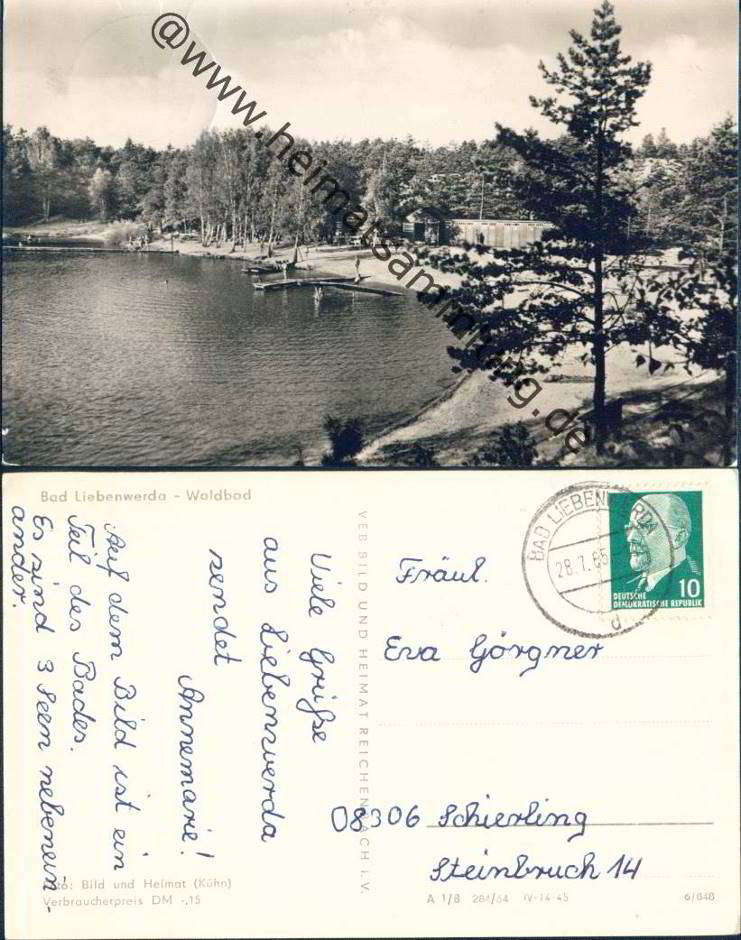 @www.heimatsammlung.de
Bad Liebenwerda - Waldbad
Viele Grüße
aus Liebenwerda
sendet
Annemarie!
Auf dem Bild ist ein
Teil des Bades.
Es sind 3 Seen nebenein-
ander.
Foto: Bild und Heimat (Kühn)
Verbraucherpreis DM -,15
VEB BILD UND HEIMAT REICHENBACH I. V.
BAD LIEBENWERDA
28.7.65
d
10
DEUTSCHE
DEMOKRATISCHE REPUBLIK
Fräul.
Eva Görgner
08306 Schierling
Steinbruch 14
A 1/B 284/64 IV-14-45 6/848